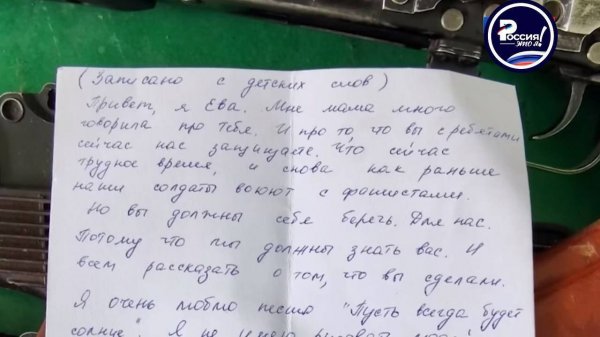 Россия
это я!
(Записано с детских слов)
Привет, я Ева. Мне мама много
говорила про тебя. И про то, что вы с ребятами
сейчас нас защищаете. Что сейчас
трудное время, и снова как раньше
наши солдаты воюют с фашистами.
Но вы должны себя беречь. Для нас.
Потому что мы должны знать вас. И
всем рассказать о том, что вы сделали.
Я очень люблю песню "Пусть всегда будет
солнце". Я не умею рисовать